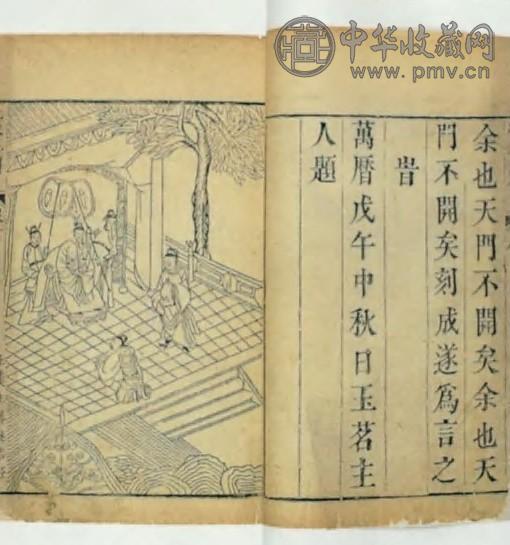 中华收藏网
www.pmv.cn
余也天門不開矣余也天
門不開矣刻成遂爲言之
旹
萬曆戊午中秋日玉茗主
人題